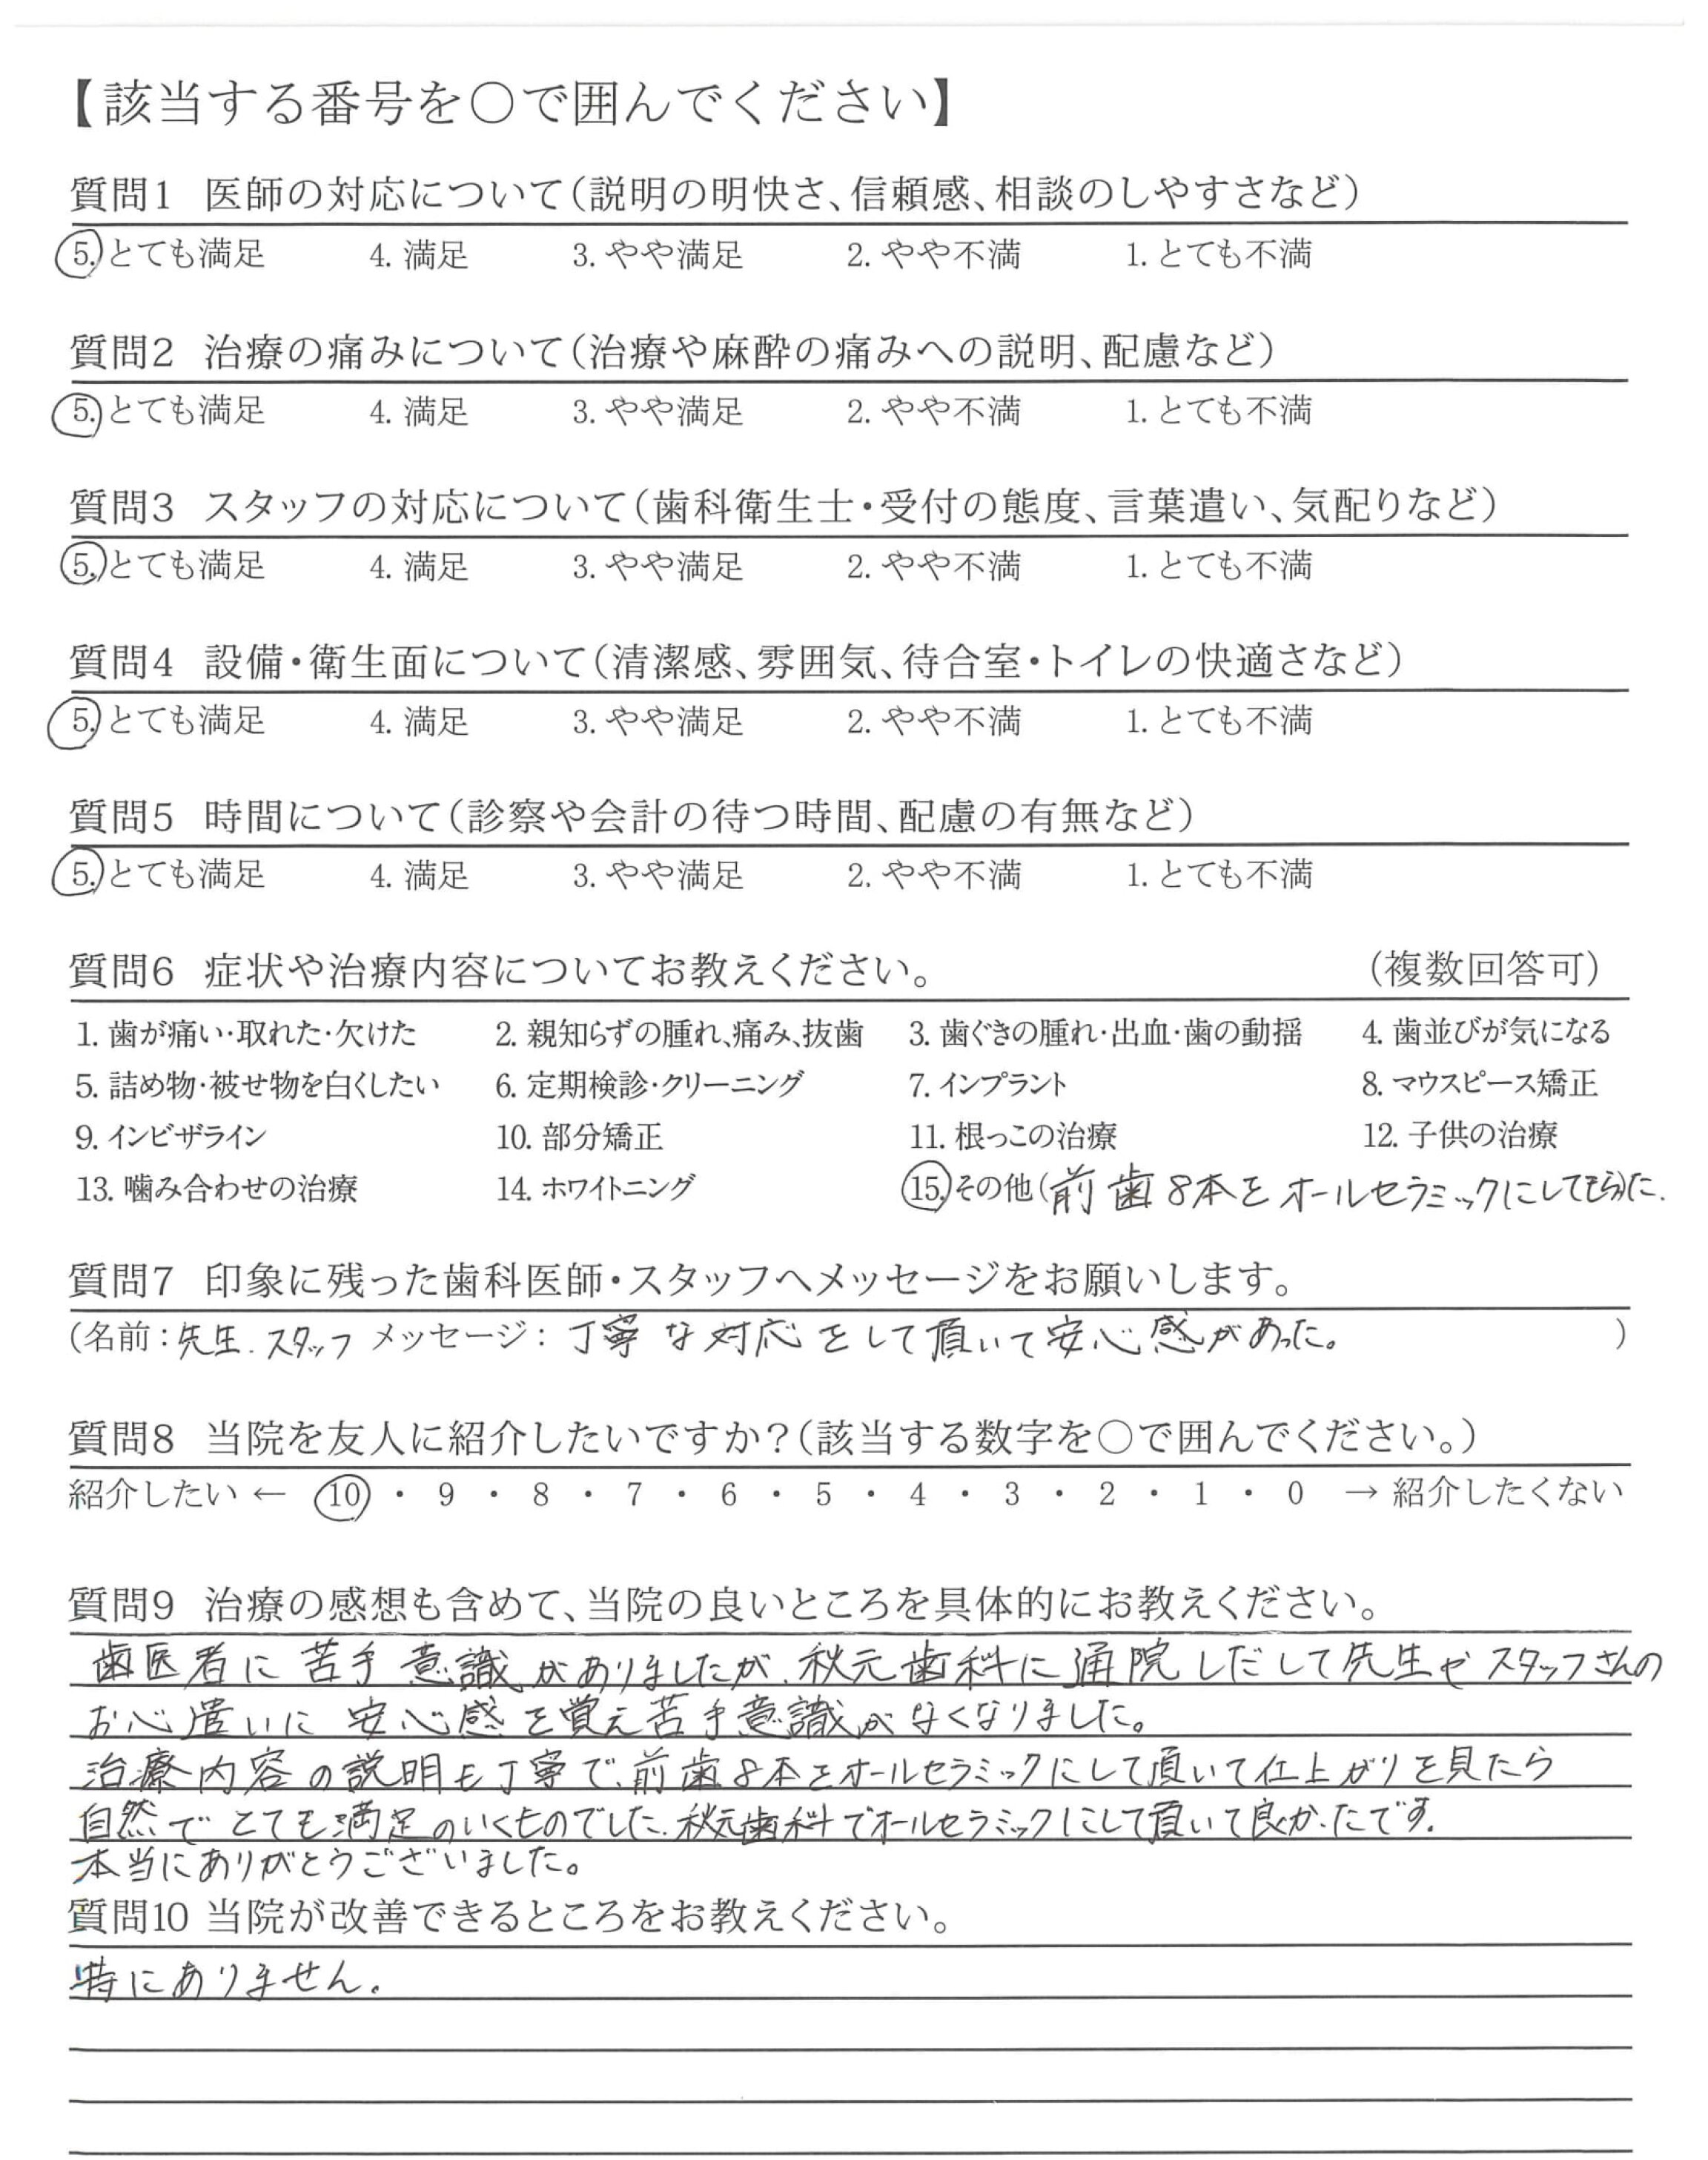 【該当する番号を○で囲んでください】
質問1 医師の対応について(説明の明快さ、信頼感、相談のしやすさなど)
5. とても満足 4. 満足 3. やや満足 2. やや不満 1. とても不満
質問2 治療の痛みについて(治療や麻酔の痛みへの説明、配慮など)
5. とても満足 4. 満足 3. やや満足 2. やや不満 1. とても不満
質問3 スタッフの対応について(歯科衛生士・受付の態度、言葉遣い、気配りなど)
5. とても満足 4. 満足 3. やや満足 2. やや不満 1. とても不満
質問4 設備・衛生面について(清潔感、雰囲気、待合室・トイレの快適さなど)
5. とても満足 4. 満足 3. やや満足 2. やや不満 1. とても不満
質問5 時間について(診察や会計の待つ時間、配慮の有無など)
5. とても満足 4. 満足 3. やや満足 2. やや不満 1. とても不満
質問6 症状や治療内容についてお教えください。 (複数回答可)
1. 歯が痛い・取れた・欠けた 2. 親知らずの腫れ、痛み、抜歯 3. 歯ぐきの腫れ・出血・歯の動揺 4. 歯並びが気になる
5. 詰め物・被せ物を白くしたい 6. 定期検診・クリーニング 7. インプラント 8. マウスピース矯正
9. インビザライン 10. 部分矯正 11. 根っこの治療 12. 子供の治療
13. 噛み合わせの治療 14. ホワイトニング 15. その他(前歯8本をオールセラミックにしてもらった.
質問7 印象に残った歯科医師・スタッフへメッセージをお願いします。
(名前:先生.スタッフ メッセージ: 丁寧な対応をして頂いて安心感があった。 )
質問8 当院を友人に紹介したいですか?(該当する数字を○で囲んでください。)
紹介したい ← 10 ・ 9 ・ 8 ・ 7 ・ 6 ・ 5 ・ 4 ・ 3 ・ 2 ・ 1 ・ 0 → 紹介したくない
質問9 治療の感想も含めて、当院の良いところを具体的にお教えください。
歯医者に苦手意識がありましたが、秋元歯科に通院しだして先生やスタッフさんの
お心遣いに安心感を覚え苦手意識がなくなりました。
治療内容の説明も丁寧で、前歯8本をオールセラミックにして頂いて仕上がりを見たら
自然でとても満足のいくものでした.秋元歯科でオールセラミックにして頂いて良かったです.
本当にありがとうございました。
質問10 当院が改善できるところをお教えください。
特にありません.